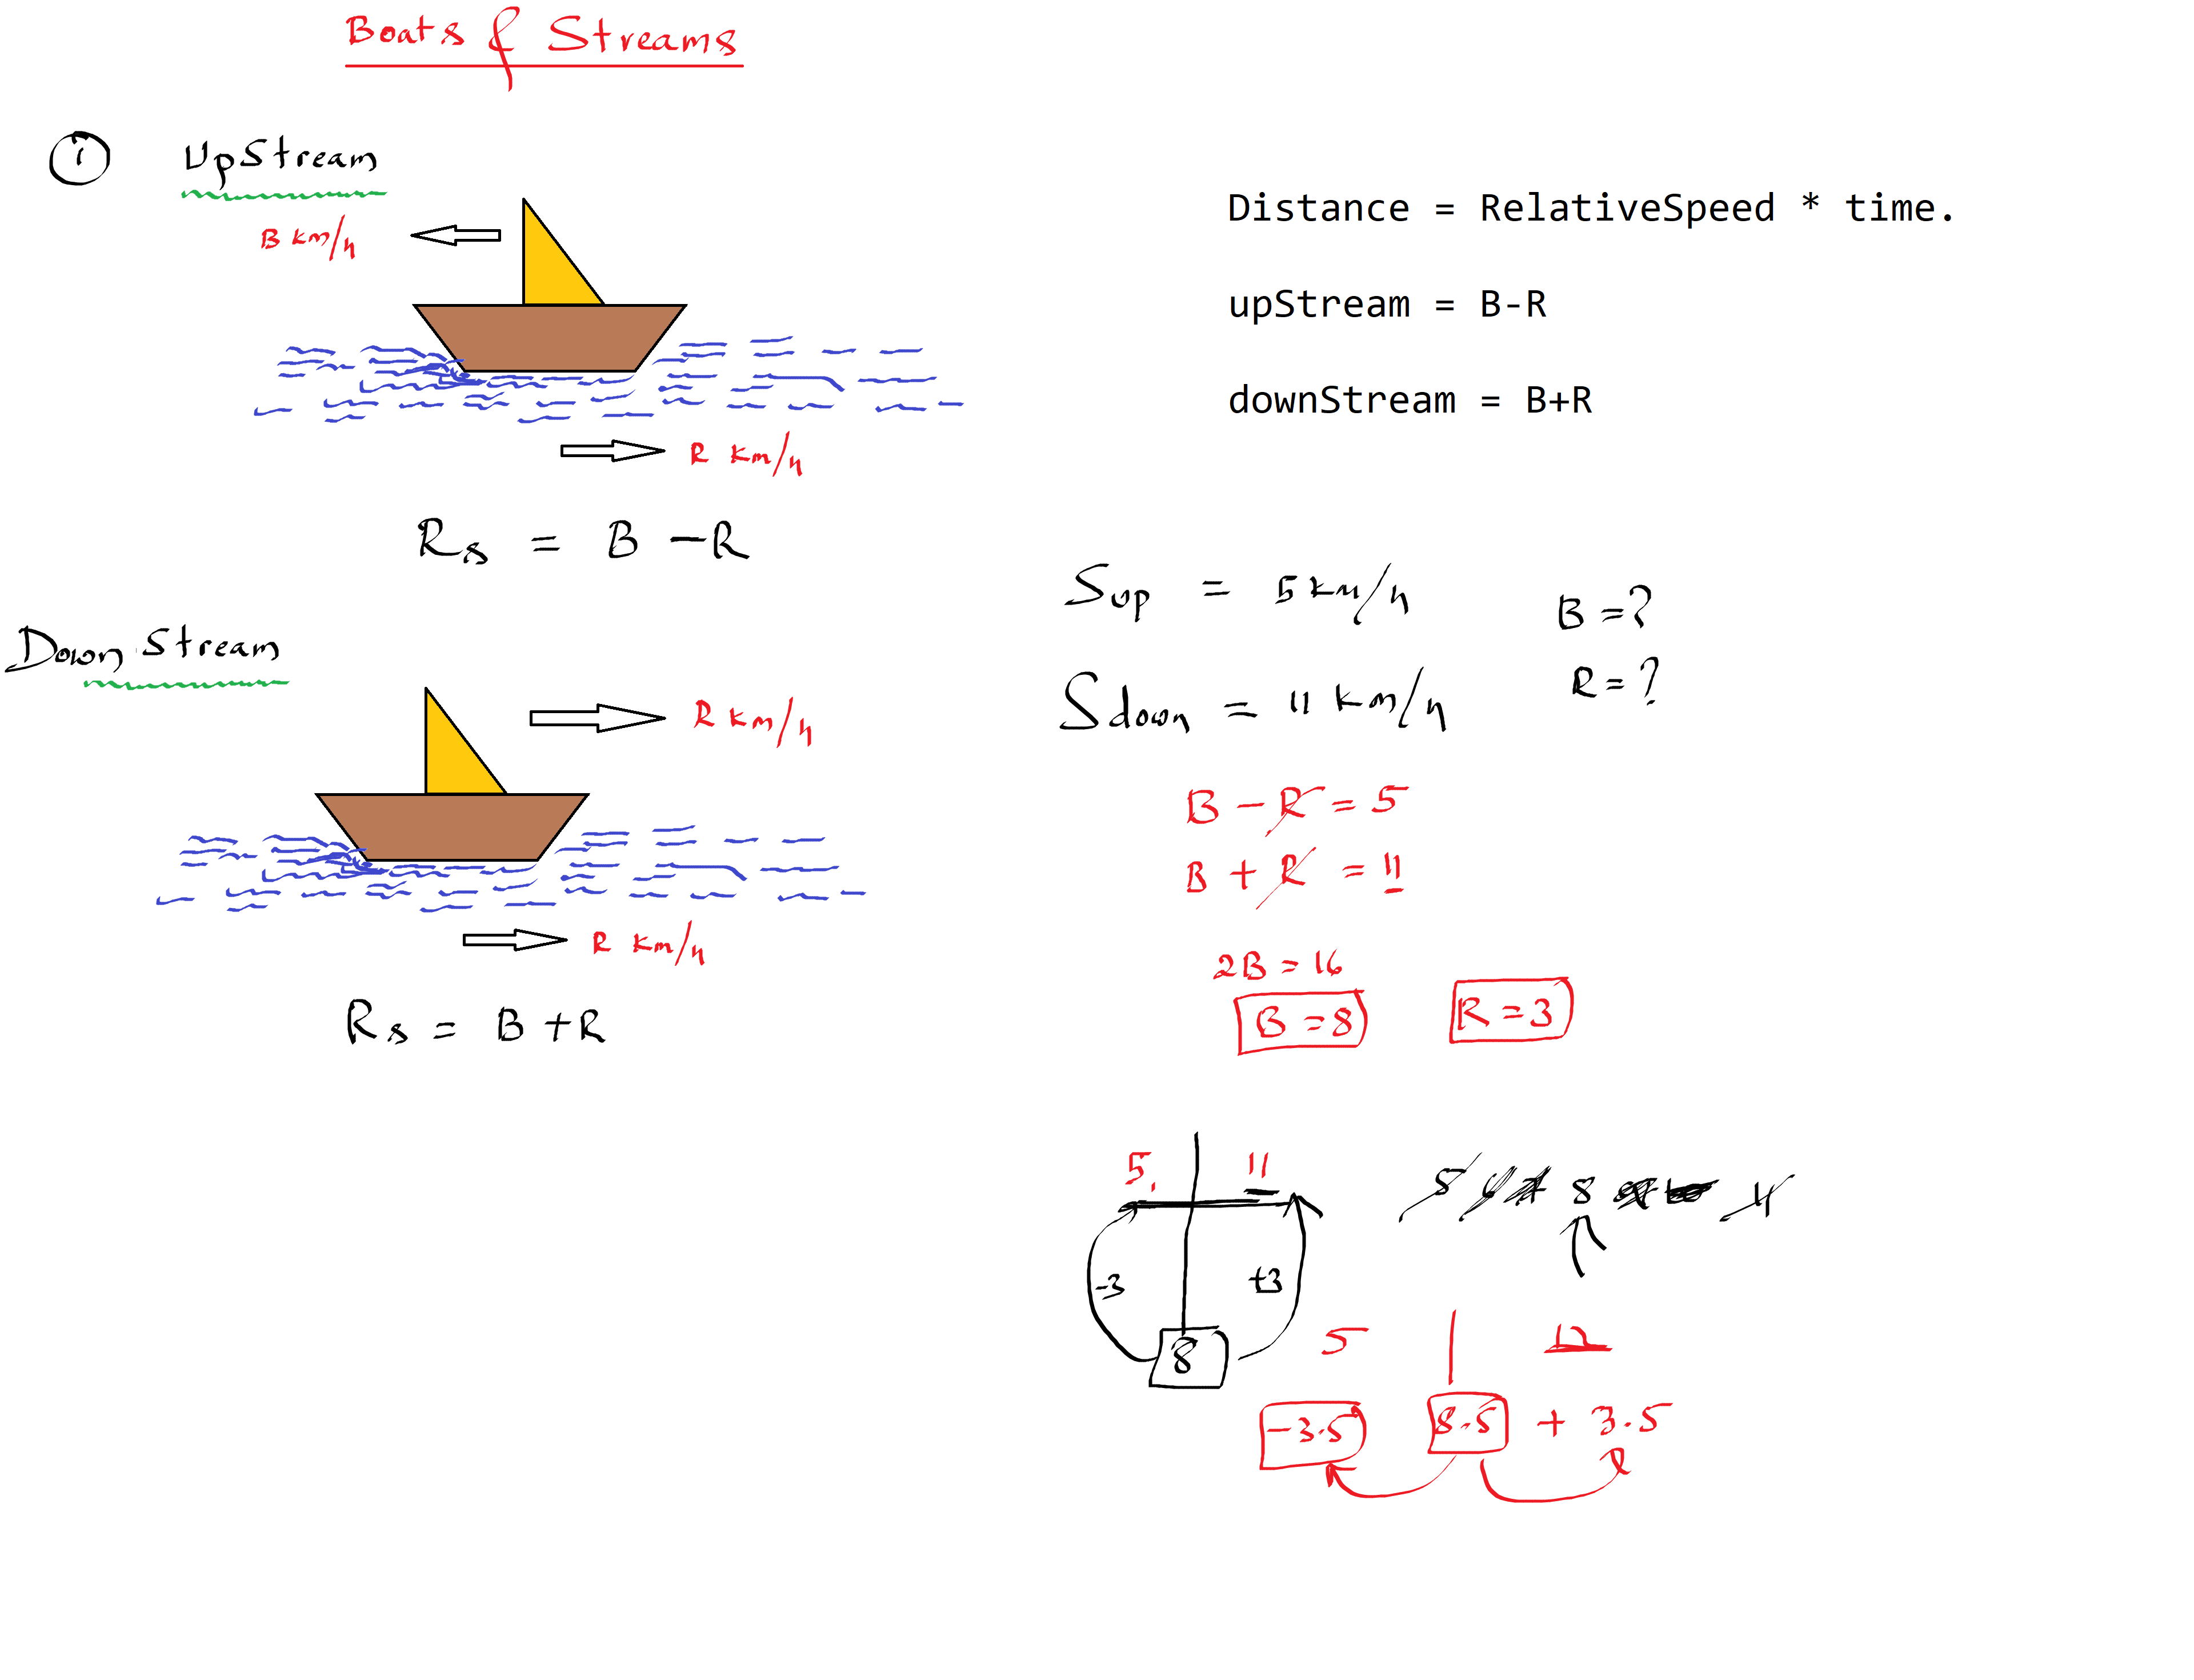 Boats & Streams
i UpStream
B km/h
R km/h
Rs = B - R
Down Stream
R km/h
R km/h
Rs = B + R
Distance = RelativeSpeed * time.
upStream = B-R
downStream = B+R
Sup = 5 km/h
B = ?
Sdown = 11 km/h
R = ?
B - R = 5
B + R = 11
2B = 16
B = 8
R = 3
5 11
-3 +3
8
5 8
5 12
-3.5 8.5 + 3.5